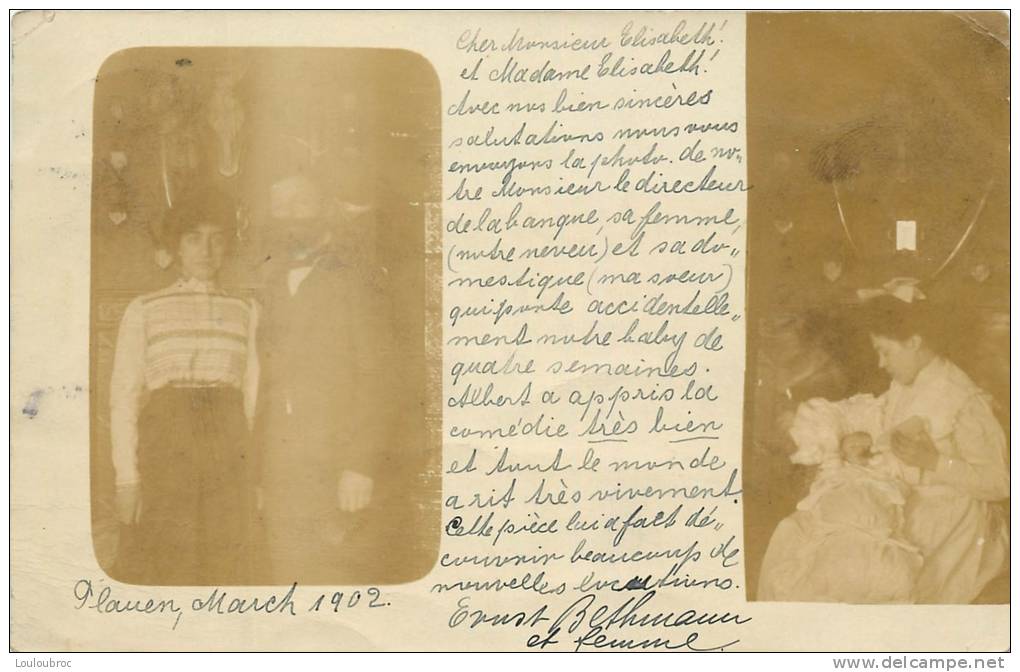 Cher Monsieur Elisabeth!
et Madame Elisabeth!
Avec nos bien sincères
salutations nous vous
envoyons la photo. de no„
tre Monsieur le directeur
de la banque, sa femme,
(notre neveu) et sa do„
mestique (ma soeur)
qui porte accidentelle„
ment notre baby de
quatre semaines.
Albert a appris la
comédie très bien
et tout le monde
a rit très vivement.
Cette pièce lui a fact dé„
couvrir beaucoup de
nouvelles locutions.
Ernst Bethmann
et femme.
Plauen, March 1902.
Louloubroc
www.delcampe.net